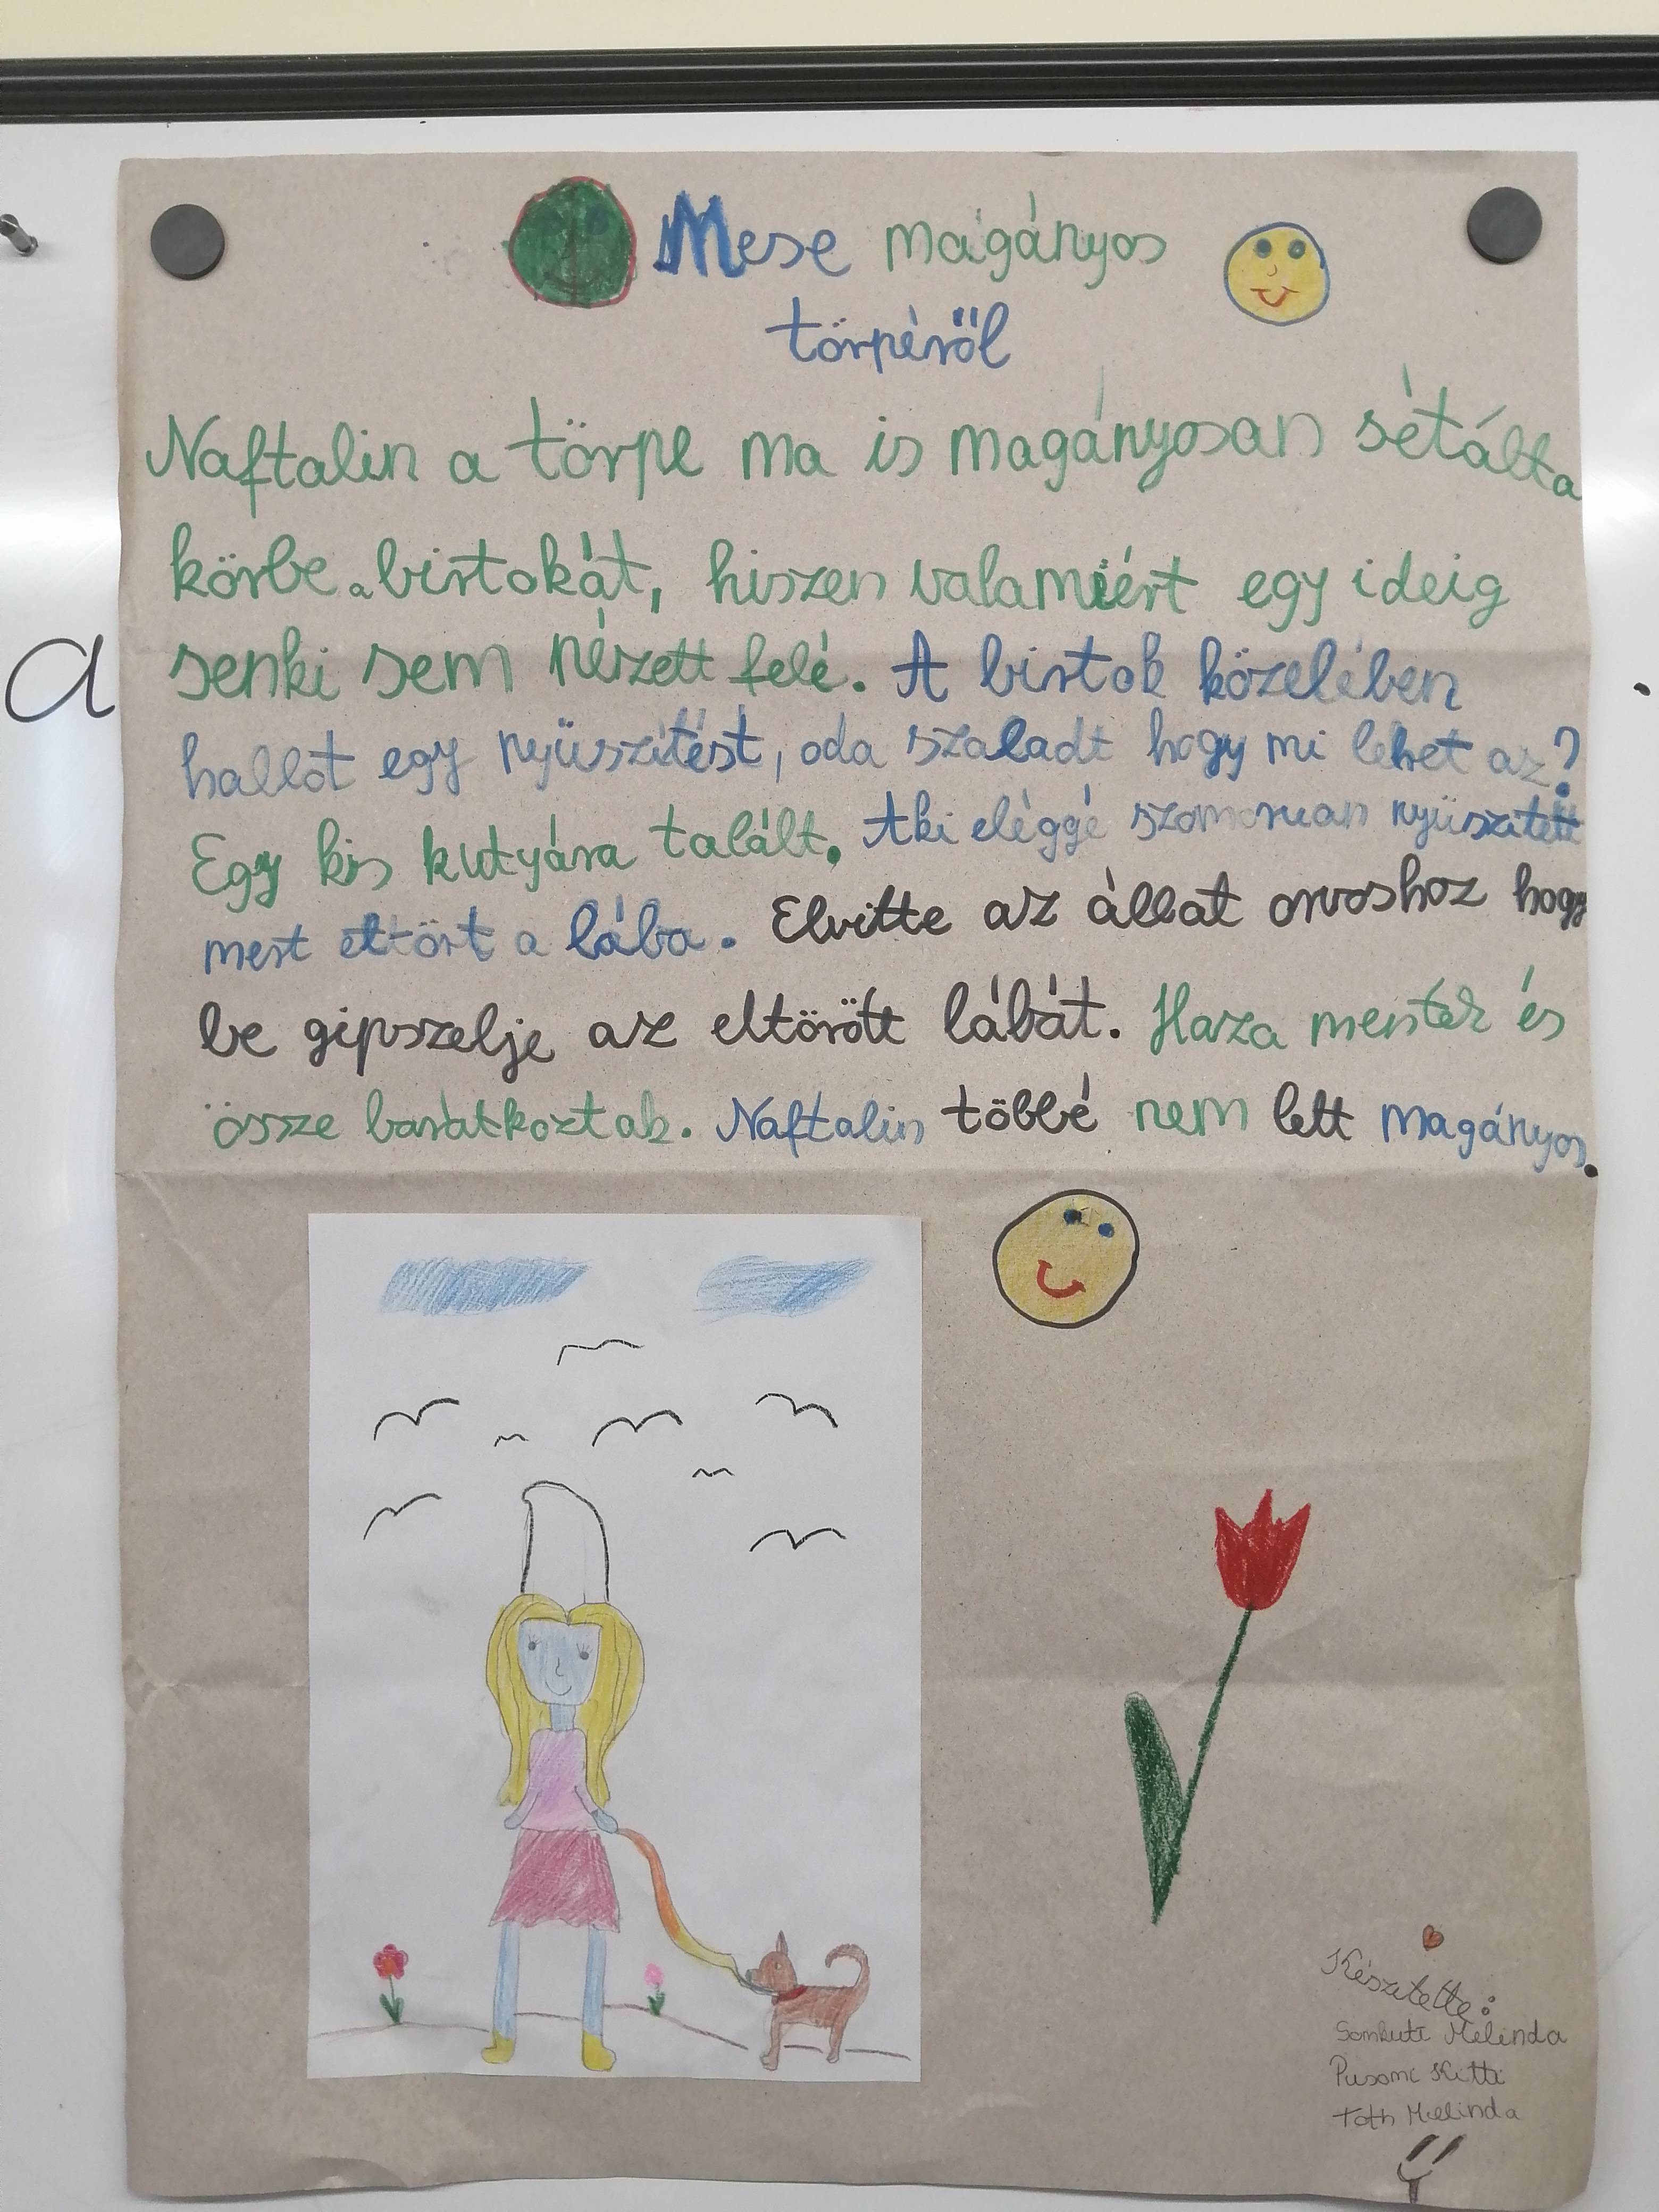 Mese magányos
törpéről
Naftalin a törpe ma is magányosan sétálta
körbe a birtokát, hiszen valamiért egy ideig
senki sem nézett felé. A birtok közelében
hallot egy nyüszítést, oda szaladt hogy mi lehet az?
Egy kis kutyára talált. Aki eléggé szomoruan nyüszitett
mert eltört a lába. Elvitte az állat orvoshoz hogy
be gipszelje az eltörött lábát. Haza mentek és
össze barátkoztak. Naftalin többé nem lett magányos.
a
Készitette:
Somkuti Melinda
Kitti
Toth Melinda